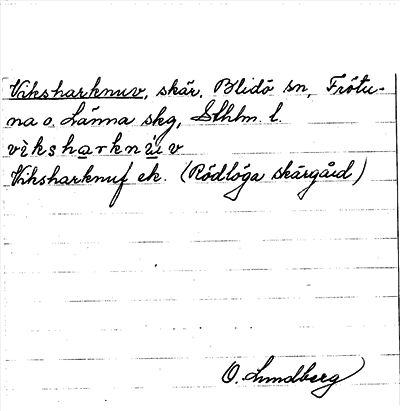 Viksharknuv, skär, Blidö sn, Frötu-
na o. Länna skg, Sthlm. l.
vìksharknùv
Viksharknuf ek. (Rödlöga skärgård)
O. Lundberg